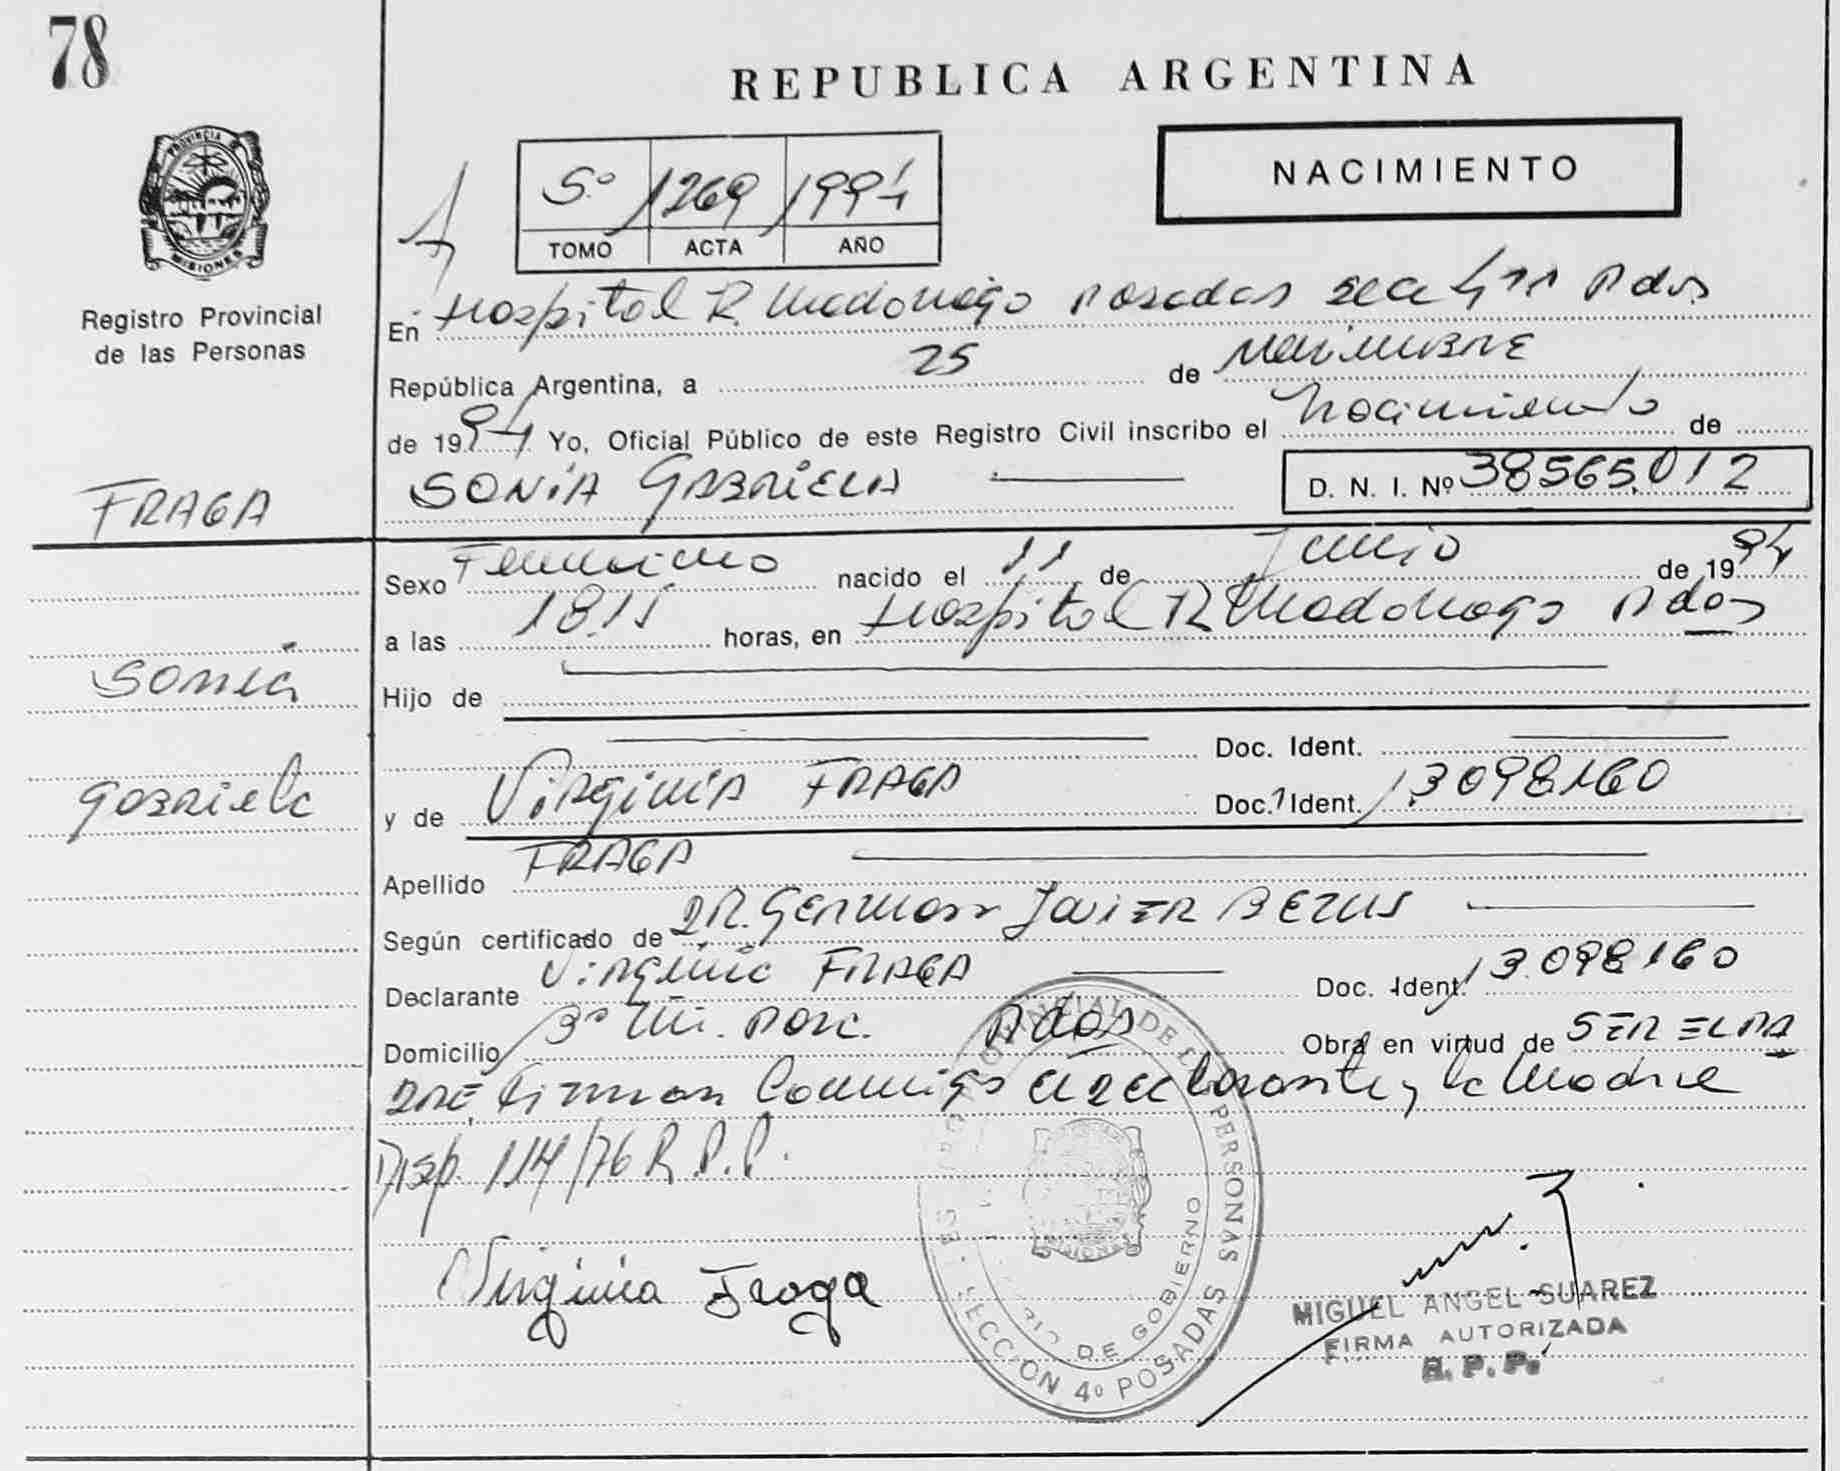 78
REPUBLICA ARGENTINA
PROVINCIA
MISIONES
Registro Provincial
de las Personas
5º 1269 1994
TOMO ACTA AÑO
NACIMIENTO
En Hospital R. Madariaga Posadas Sec 4ª Pdas.
República Argentina, a 25 de Noviembre
de 1994 Yo, Oficial Público de este Registro Civil inscribo el Nacimiento de
SONIA GABRIELA D. N. I. Nº 38565.012
FRAGA
Sonia
Gabriela
Sexo Femenino nacido el 11 de Junio de 1994
a las 18.15 horas, en Hospital R Madariaga Pdas
Hijo de
Doc. Ident.
y de Virginia FRAGA Doc. Ident. 13.098.160
Apellido FRAGA
Según certificado de DR. German Javier BEZUS
Declarante Virginia FRAGA Doc. Ident. 13.098.160
Domicilio Pdas Obra en virtud de SER EL PA
DRE, firman Conmigo el declarante y la Madre
Disp. 114/76 R.P.P.
Virginia Fraga
PROVINCIAL DE LAS PERSONAS
MISIONES
DE GOBIERNO
SECCION 4º POSADAS
MIGUEL ANGEL SUAREZ
FIRMA AUTORIZADA
R. P. P.